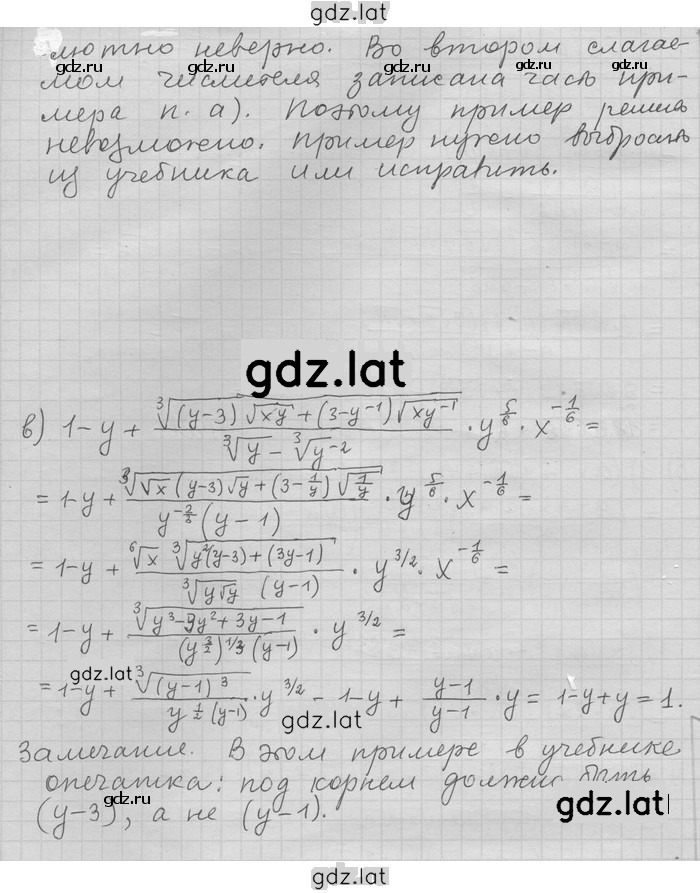 gdz.lat
лютно неверно. Во втором слагае-
мом числителя записана часть при-
мера п. а). Поэтому пример решить
невозможно. Пример нужно выбросить
из учебника или исправить.
gdz.lat
в) 1-y + ∛((y-3)√(xy) + (3-y⁻¹)√(xy⁻¹)) / (∛y - ∛y⁻²) · y^(5/6) · x^(-1/6) =
= 1-y + ∛(√x (y-3)√y + (3-1/y)√(1/y)) / (y^(-2/3) (y-1)) · y^(5/6) · x^(-1/6) =
= 1-y + ⁶√x ∛(y²(y-3) + (3y-1)) / (∛(y√y) (y-1)) · y^(3/2) · x^(-1/6) =
= 1-y + ∛(y³-3y²+3y-1) / ((y^(3/2))^(1/3) (y-1)) · y^(3/2) =
= 1-y + ∛((y-1)³) / (y^(1/2) (y-1)) · y^(3/2) - 1-y + (y-1)/(y-1) · y = 1-y+y = 1.
gdz.lat
Замечание. В этом примере в учебнике
опечатка: под корнем должно быть
(y-3), а не (y-1).
gdz.lat
gdz.lat